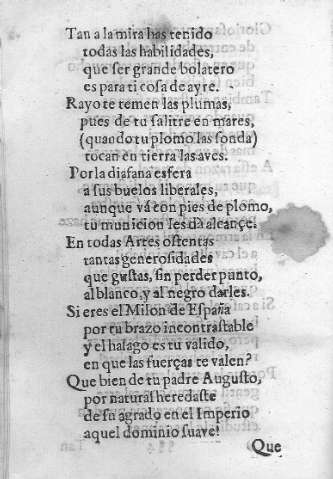 Tan a la mira has tenido
todas las habilidades,
que ser grande bolatero
es para ti cosa de ayre.
Rayo te temen las plumas,
pues de tu salitre en mares,
(quando tu plomo las sonda)
tocan en tierra las aves.
Por la diafana esfera
a sus buelos liberales,
aunque vá con pies de plomo,
tu municion les dà alcançe.
En todas Artes ostentas
tantas generosidades
que gustas, sin perder punto,
al blanco, y al negro darles.
Si eres el Milon de España
por tu brazo incontrastable
y el halago es tu valido,
en que las fuerças te valen?
Que bien de tu padre Augusto,
por natural heredaste
de su agrado en el Imperio
aquel dominio suave!
Que